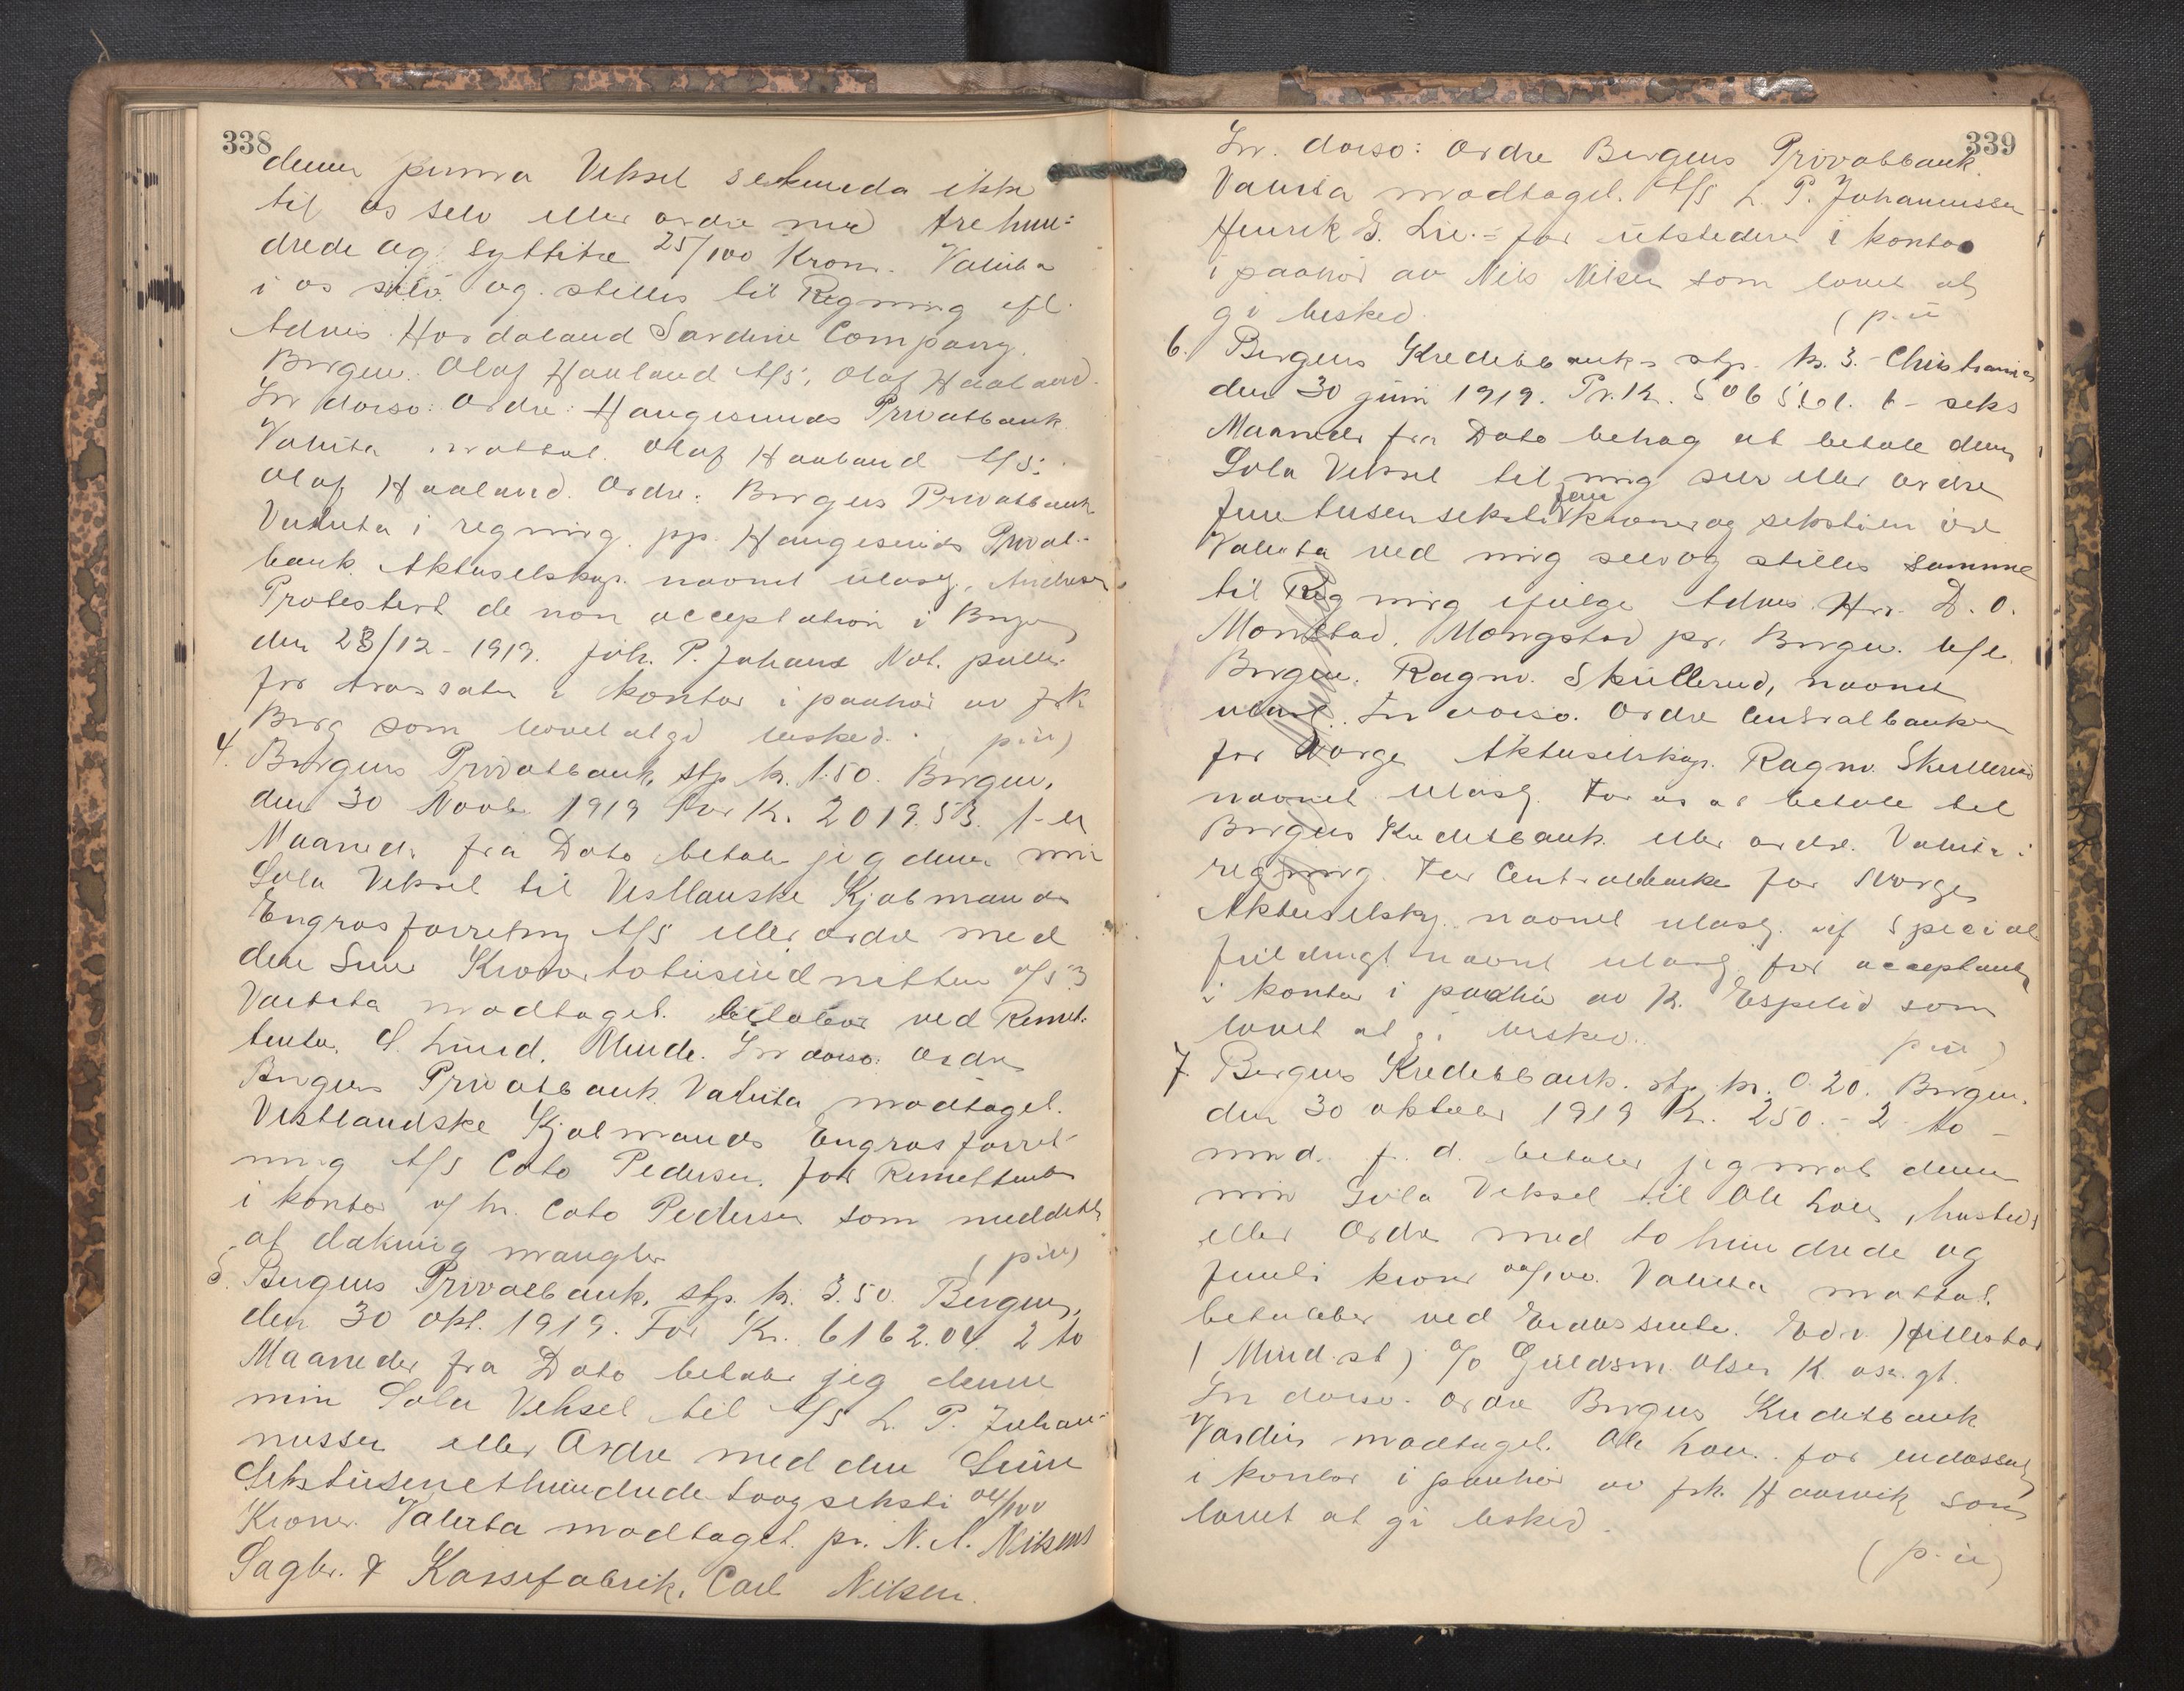 338
denne prima Veksel sekunda ikke
til os selv eller ordre med trehun-
drede og syttitre 25/100 Kroner. Valuta
i os selv og stilles til Regning efl.
Advis. Hordaland Sardine Company.
Bergen. Olaf Haaland A/S. Olaf Haaland.
In dorso: Ordre: Haugesunds Privatbank
Valuta mottat. Olaf Haaland A/S.
Olaf Haaland. Ordre: Bergens Privatbank
Valuta i regning. pp. Haugesunds Privat-
bank Aktieselskap. navnet ulæsg.
Protestert de non acceptation i Bergen
den 23/12-1919. Joh. P. Not. public.
for trassaten i kontor i paahør av frk
Berg som lovet at gi besked. p.u)
4. Bergens Privatbank, stp. kr. 1.50. Bergen,
den 30 Novb. 1919 for K. 2019.53. 1-en
Maaned fra Dato betaler jeg denne min
Sola Veksel til Vestlanske Kjøbmands
Engrosforretning A/S eller ordre med
den Sum Kroner totusindnitten 0/53
Valuta modtaget. betalbar ved Remit-
tenten. S. Lund. Minde. In dorso. Ordre
Bergens Privatbank. Valuta modtaget.
Vestlandske Kjøbmands Engrosforret-
ning A/S Cato Pedersen. for Remittenten
i kontor af hr. Cato Pedersen som meddelte
at dækning mangler (p.u)
5. Bergens Privatbank, stp. kr. 3.50. Bergen,
den 30 okt. 1919. For Kr. 6162.04. 2 to
Maaneder fra Dato betaler jeg denne
min Sola Veksel til A/S L. P. Johan-
nessen eller Ordre med den Sum
Sekstusenethundrede toogseksti 04/100
Kroner. Valuta modtaget. pr. N. N. Nilsens
Sagbr. & Kassefabrik. Carl Nilsen.
339
In dorso: Ordre Bergens Privatbank.
Valuta modtaget. A/S L. P. Johannessen
Henrik S. Lie. = for utstederen i kontor
i paahør av Nils Nilsen som lovet at
gi besked. (p.u
6. Bergens Kreditbank stp. kr. 3.- Christiania
den 30 juni 1919. Pr. K. 5065.61. 6- seks
Maaneder fra Dato behag at betale denne
Sola Veksel til mig selv eller ordre
femtusenseksti fem kroner og sekstien øre
Valuta ved mig selv og stilles samme
til Regning ifølge Advis. Hr. D. O.
Monstad, Mongstad pr. Bergen.
Bergen. Ragnv. Skullerud, navnet
ulæsl. In dorso. Ordre Centralbanken
for Norge Aktieselskap. Ragnv. Skullerud
navnet ulæsg. For os at betale til
Bergens Kreditbank eller ordre. Valuta i
regning. For Centralbanken for Norge
Aktieselsk. navnet ulæsg. if. Special
fuldmagt navnet ulæsg for acceptanten
i kontor i paahør av K. Espelid som
lovet at gi besked. p.u)
7 Bergens Kreditbank. stp. kr. 0.20. Bergen.
den 30 oktober 1919 Kr. 250.- 2 to-
mnd. f. d. betaler jeg mot denne
min Sola Veksel til Ole
eller Ordre med to hundrede og
femti kroner 00/100. Valuta mottat.
betalbar ved
(Mind. st) c/o Guldsm. Olsen K.
In dorso. Ordre Bergens Kreditbank
Værdien modtaget. Ole for endossenten
i kontor i paahør av frk. Haarvik som
lovet at gi besked.
(p.u)